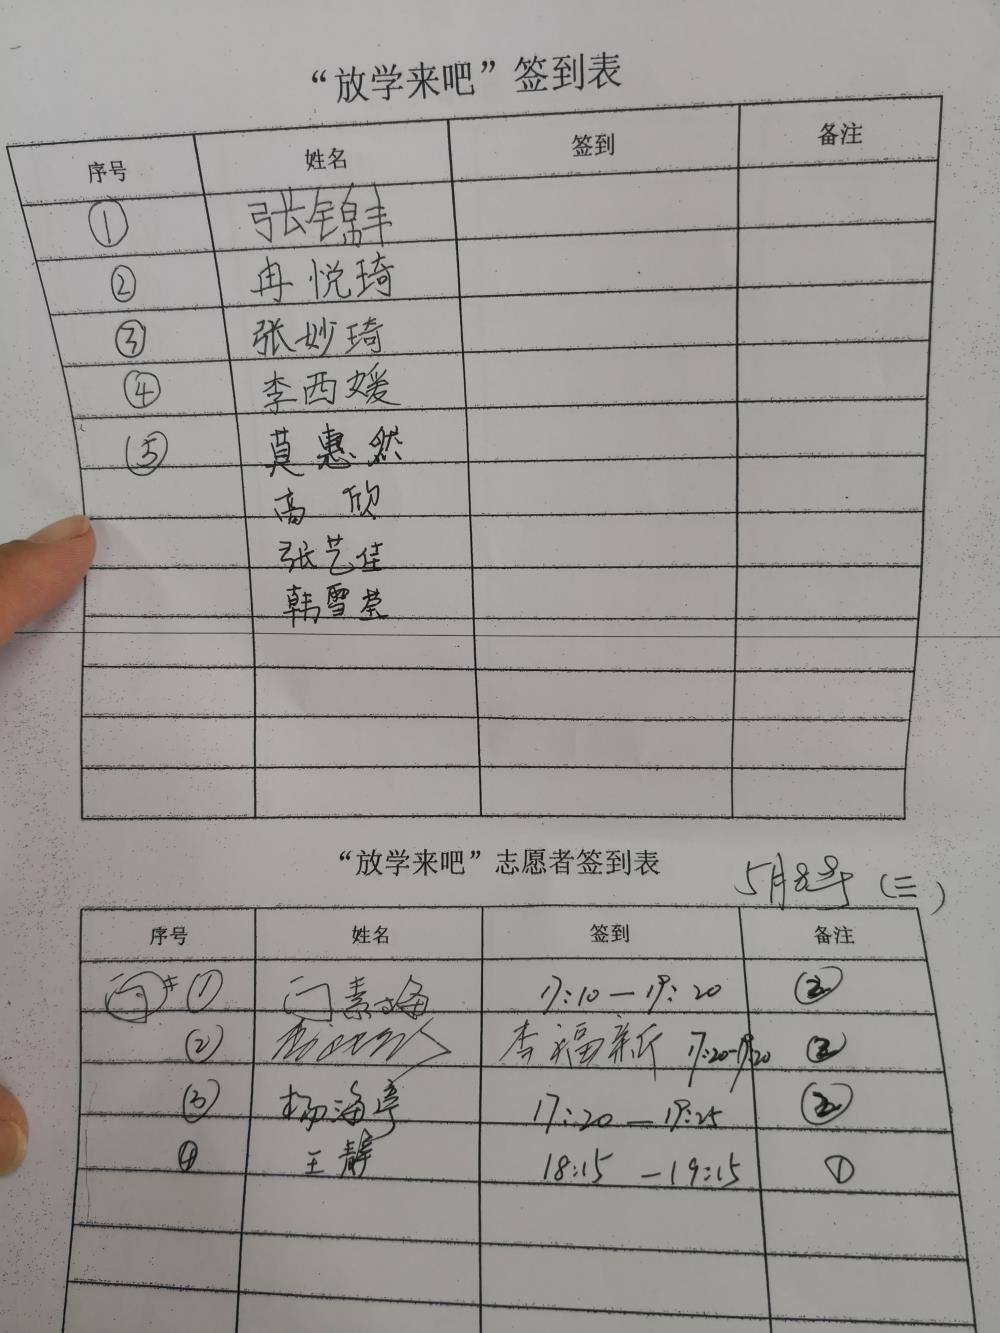 “放学来吧”签到表
序号 姓名 签到 备注
① 张锦丰
② 冉悦琦
③ 张妙琦
④ 李西媛
⑤ 莫惠然
高欣
张艺佳
韩雪莹
“放学来吧”志愿者签到表 5月8号(三)
序号 姓名 签到 备注
① 闫素梅 17:10—19:20 ②
② 李福新 17:20-19:20 ②
③ 杨海亭 17:20—19:25 ②
④ 王静 18:15—19:15 ①